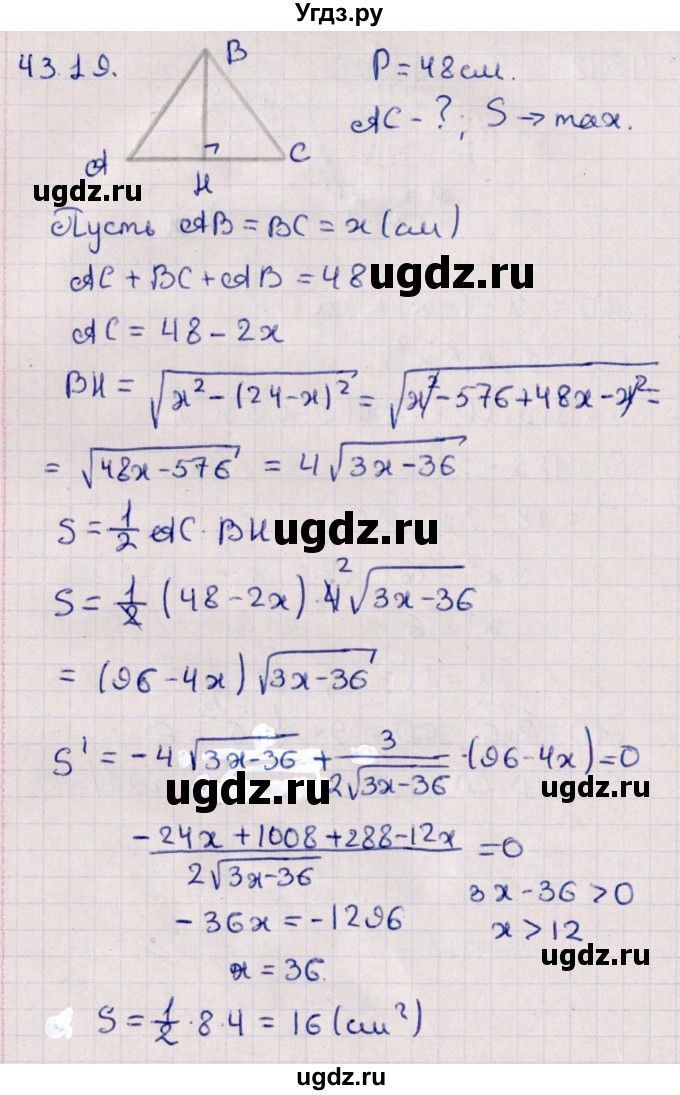 Угдз.ру
43.19.
B
P = 48 см.
AC - ?; S → max.
A
H
C
ugdz.ru
Пусть AB = BC = x (см)
AC + BC + AB = 48
ugdz.ru
AC = 48 - 2x
BH = √(x² - (24 - x)²) = √(x² - 576 + 48x - x²) =
= √(48x - 576) = 4√(3x - 36)
S = 1/2 AC · BH
ugdz.ru
S = 1/2 (48 - 2x) · 4 2 √(3x - 36)
= (96 - 4x) √(3x - 36)
S' = -4√(3x - 36) + 3/(2√(3x - 36)) · (96 - 4x) = 0
ugdz.ru
ugdz.ru
(-24x + 1008 + 288 - 12x)/(2√(3x - 36)) = 0
ugdz.ru
3x - 36 > 0
-36x = -1296
x > 12
ugdz.ru
x = 36.
S = 1/2 · 8 · 4 = 16 (см²)
ugdz.ru